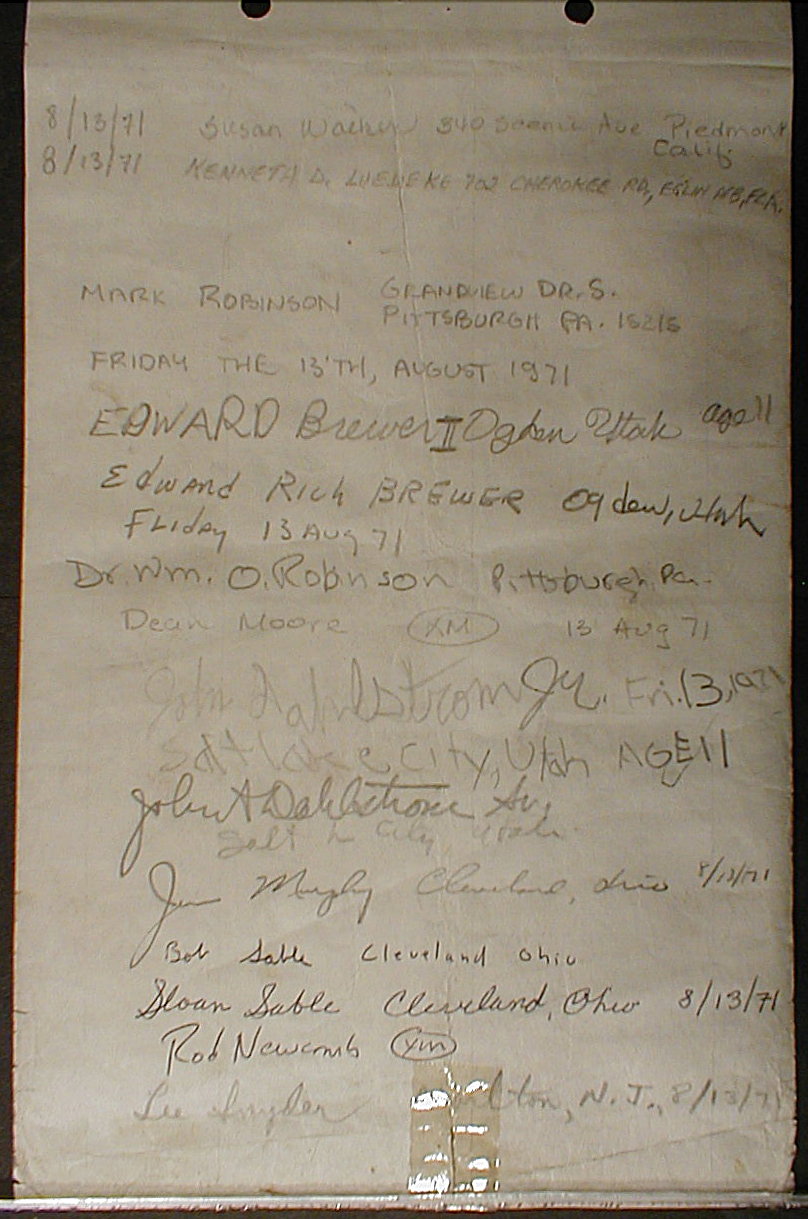 8/13/71 Susan Walker 340 Scenic Ave Piedmont
Calif
8/13/71 KENNETH D. LUEDEKE 702 CHEROKEE RD, EGLIN AFB, FLA.
MARK ROBINSON GRANDVIEW DR. S.
PITTSBURGH PA. 15215
FRIDAY THE 13'TH, AUGUST 1971
EDWARD Brewer II Ogden Utah age 11
Edward Rich BREWER Ogden, Utah
Friday 13 Aug 71
Dr. Wm. O. Robinson Pittsburgh, Pa.
Dean Moore XM 13 Aug 71
John Dahlstrom Jr. Fri. 13, 1971
Salt lake City, Utah AGE 11
John A Dahlstrom Sr.
Salt L City Utah
Jim Murphy Cleveland, Ohio 8/13/71
Bob Sable Cleveland Ohio
Sloan Sable Cleveland, Ohio 8/13/71
Rod Newcomb XM
Lee Snyder lton, N.J., 8/13/71